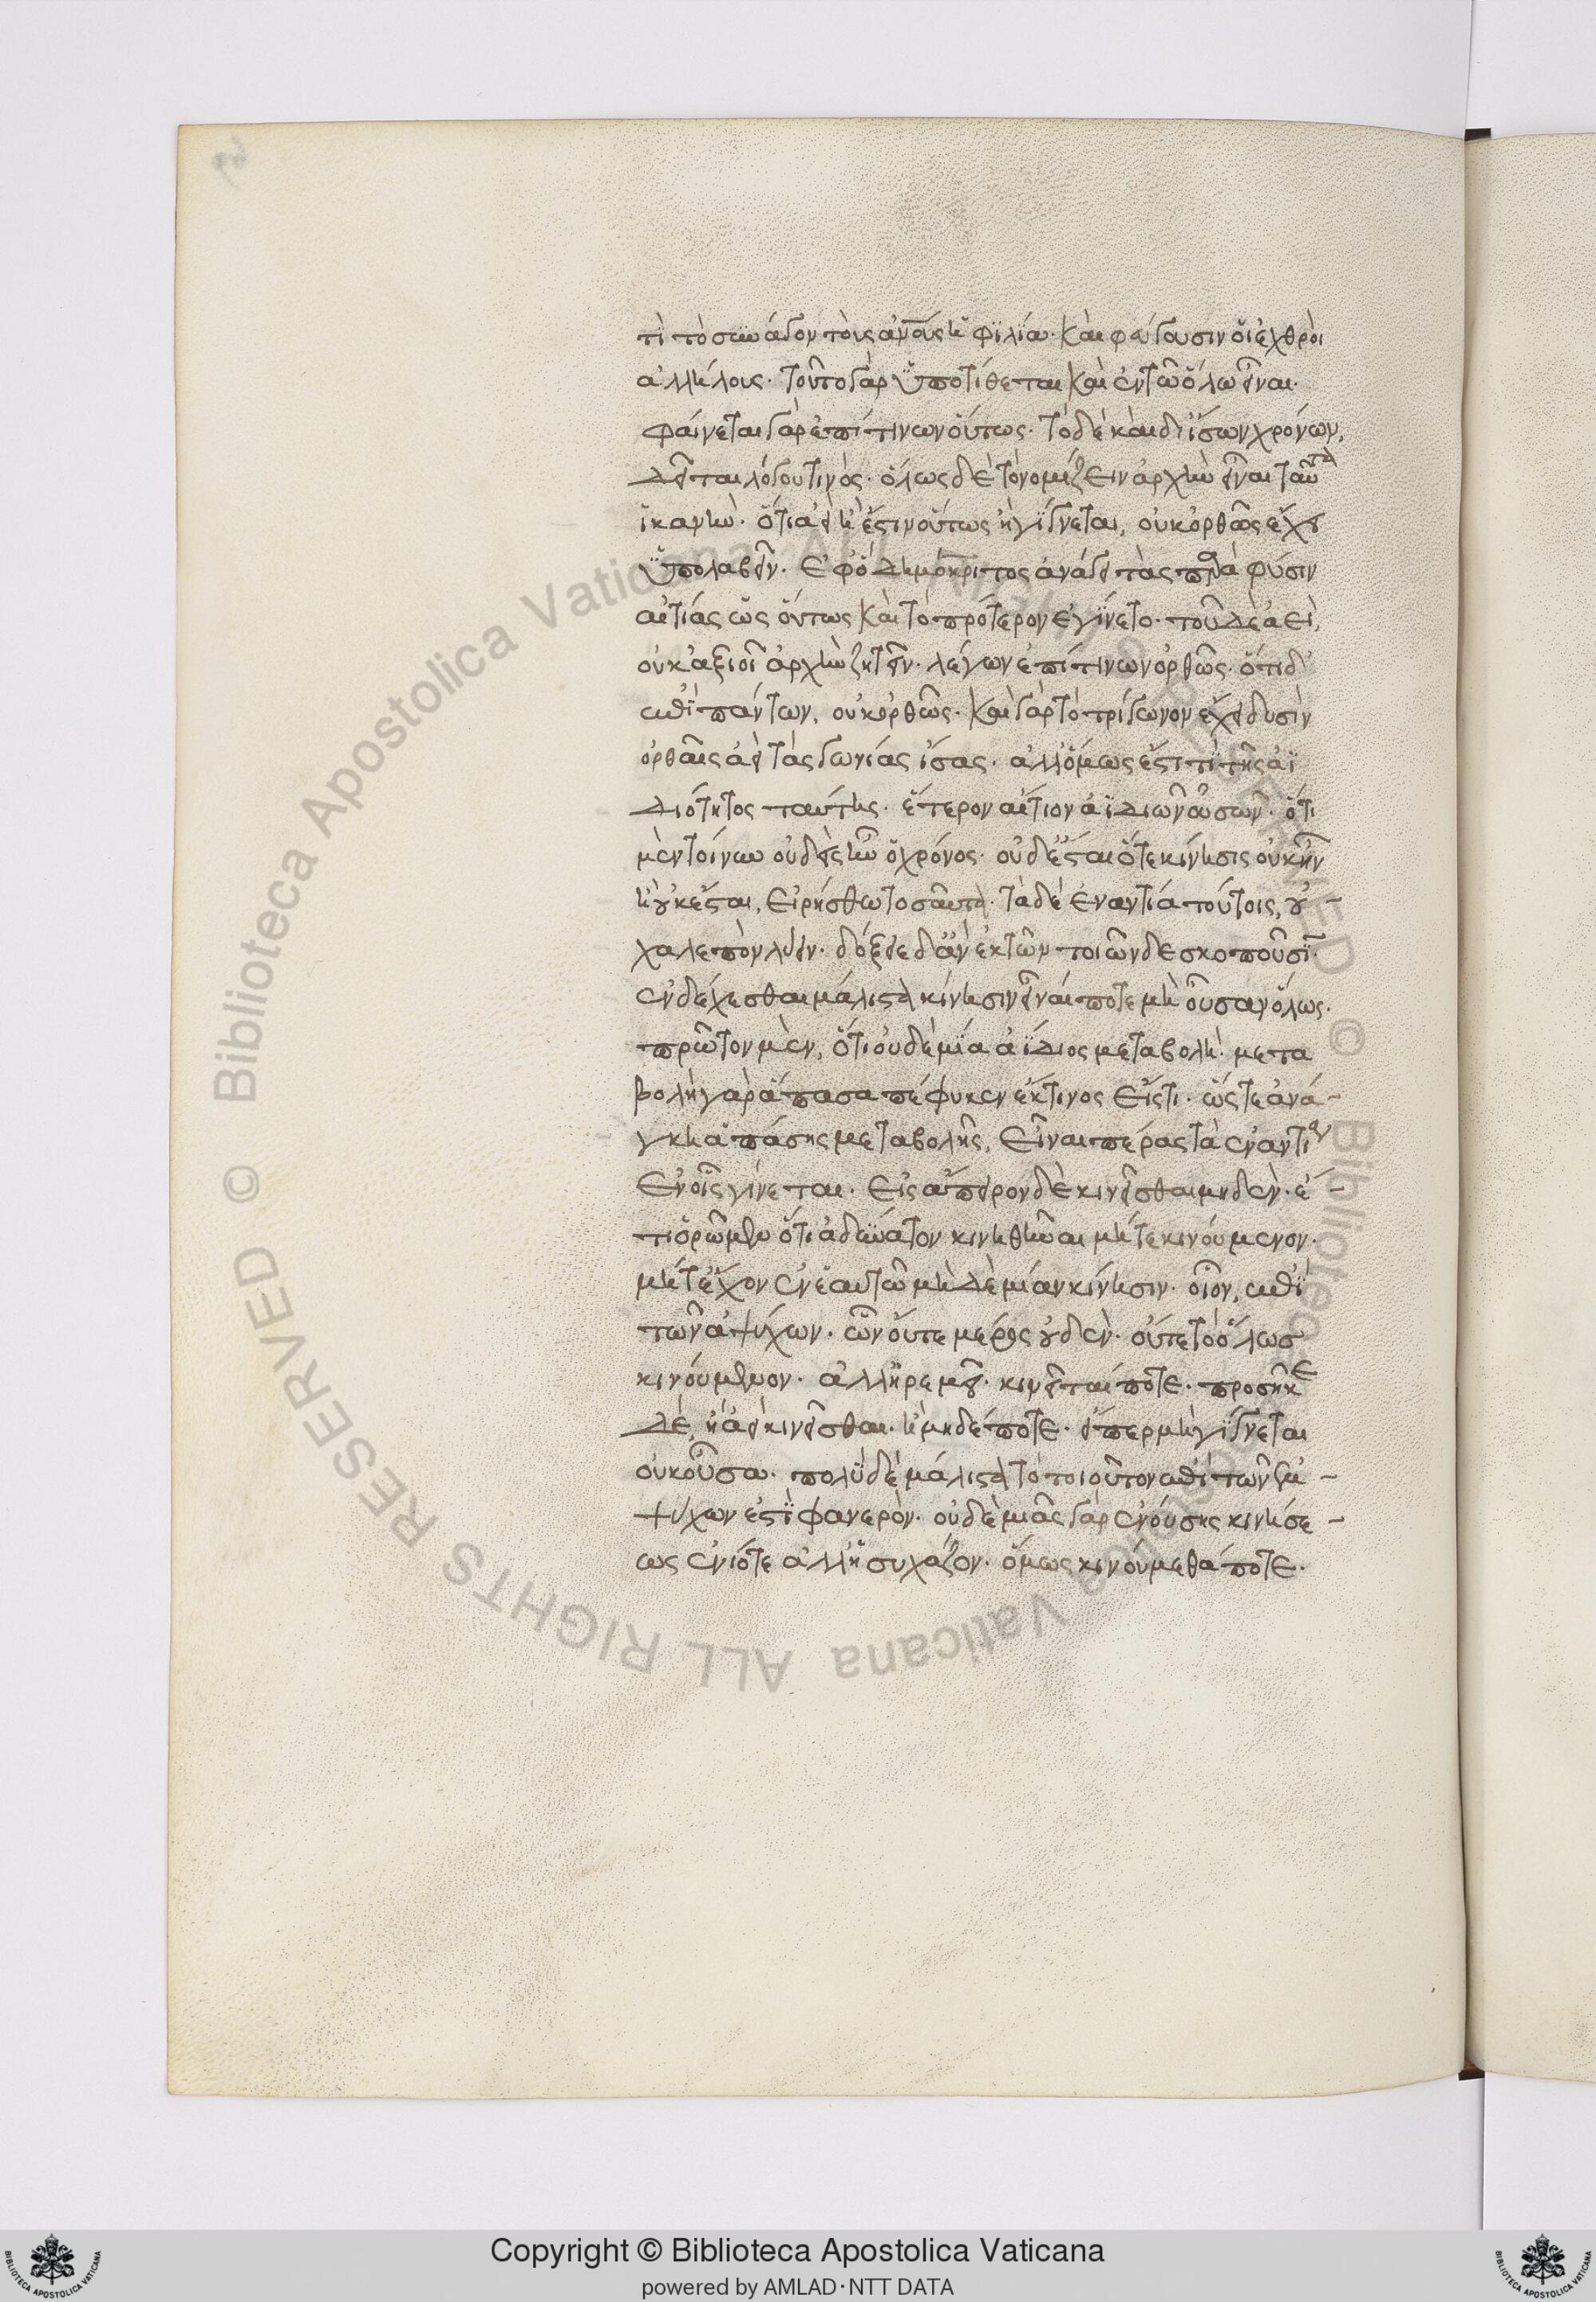 τὶ τὸ συνάγον τοὺς ἀνους ἡ φιλία· καὶ φεύγουσιν οἱ ἐχθροὶ
ἀλλήλους· τοῦτο γὰρ ὑποτίθεται καὶ ἐν τῶ ὅλω εἶναι·
φαίνεται γὰρ ἐπί τινων οὕτως· τὸ δὲ καὶ δι ἴσων χρόνων,
δεῖται λόγου τινὸς· ὅλως δὲ τὸ νομίζειν ἀρχὴν εἶναι ταύτὴν
ἱκανὴν· ὅτι ἀεὶ ἢ ἔστιν οὕτως ἢ γίγνεται, οὐκ ὀρθῶς ἔχει
ὑπολαβεῖν· ἐφ ὃ Δημόκριτος ἀνάγει τὰς περὶ φύσιν
αἰτίας ὡς οὕτως καὶ τὸ πρότερον ἐγίνετο· τοῦ δὲ ἀεὶ,
οὐκ ἀξιοῖ ἀρχὴν ζητεῖν· λέγων ἐπί τινων ὀρθῶς· ὅτι δ
ἐπὶ πάντων, οὐκ ὀρθῶς· καὶ γὰρ τὸ τρίγωνον ἔχει δυσὶν
ὀρθαῖς ἀεὶ τὰς γωνίας ἴσας· ἀλλ ὅμως ἐστί τι τῆς ἀϊ
διότητος ταύτης· ἕτερον αἴτιον ἀϊδίων οὐσῶν· ὅτι
μὲν τοίνυν οὐδεὶς ἦν ὁ χρόνος· οὐδ ἔσται ὅτε κίνησις οὐκ ἦν
ἢ οὐκ ἔσται, εἰρήσθω τοσαῦτα· τὰ δὲ ἐναντία τούτοις, οὐ -
χαλεπὸν λύειν· δόξειε δ ἂν ἐκ τῶν τοιῶνδε σκοποῦσι·
ἐνδέχεσθαι μάλιστα κίνησιν εἶναί ποτε μὴ οὖσαν ὅλως·
πρῶτον μὲν, ὅτι οὐδὲ μία ἀΐδιος μεταβολὴ· μετα
βολὴ γὰρ ἅπασα πέφυκεν ἔκ τινος εἴς τι· ὥστε ἀνά -
γκη ἁπάσης μεταβολῆς, εἶναι πέρας τὰ ἐναντία
ἐν οἷς γίνεται· εἰς ἄπειρον δὲ κινεῖσθαι μηδὲν· ἔ -
τι ὁρῶμεν ὅτι ἀδύνατον κινηθῆναι μήτε κινούμενον·
μήτ ἔχον ἐν ἑαυτῶ μηδὲ μίαν κίνησιν· οἷον, ἐπὶ
τῶν ἀψύχων· ὧν οὔτε μέρος οὐδὲν· οὔτε τὸ ὅλωσ
κινούμενον· ἀλλ ἠρεμοῦν· κινεῖταί ποτε· προσῆκε
δὲ, ἢ ἀεὶ κινεῖσθαι· ἢ μηδέποτε· εἴπερ μὴ γίγνεται
οὐκ οὖσα· πολὺ δὲ μάλιστα τὸ τοιοῦτον ἐπὶ τῶν ἐμ -
ψύχων ἐστὶ φανερὸν· οὐδὲ μιᾶς γὰρ ἐνούσης κινήσε -
ως ἐνίοτε ἀλλ ἡσυχάζον· ὅμως κινούμεθά ποτε·
Copyright © Biblioteca Apostolica Vaticana
powered by AMLAD·NTT DATA
© Biblioteca Apostolica Vaticana ALL RIGHTS RESERVED